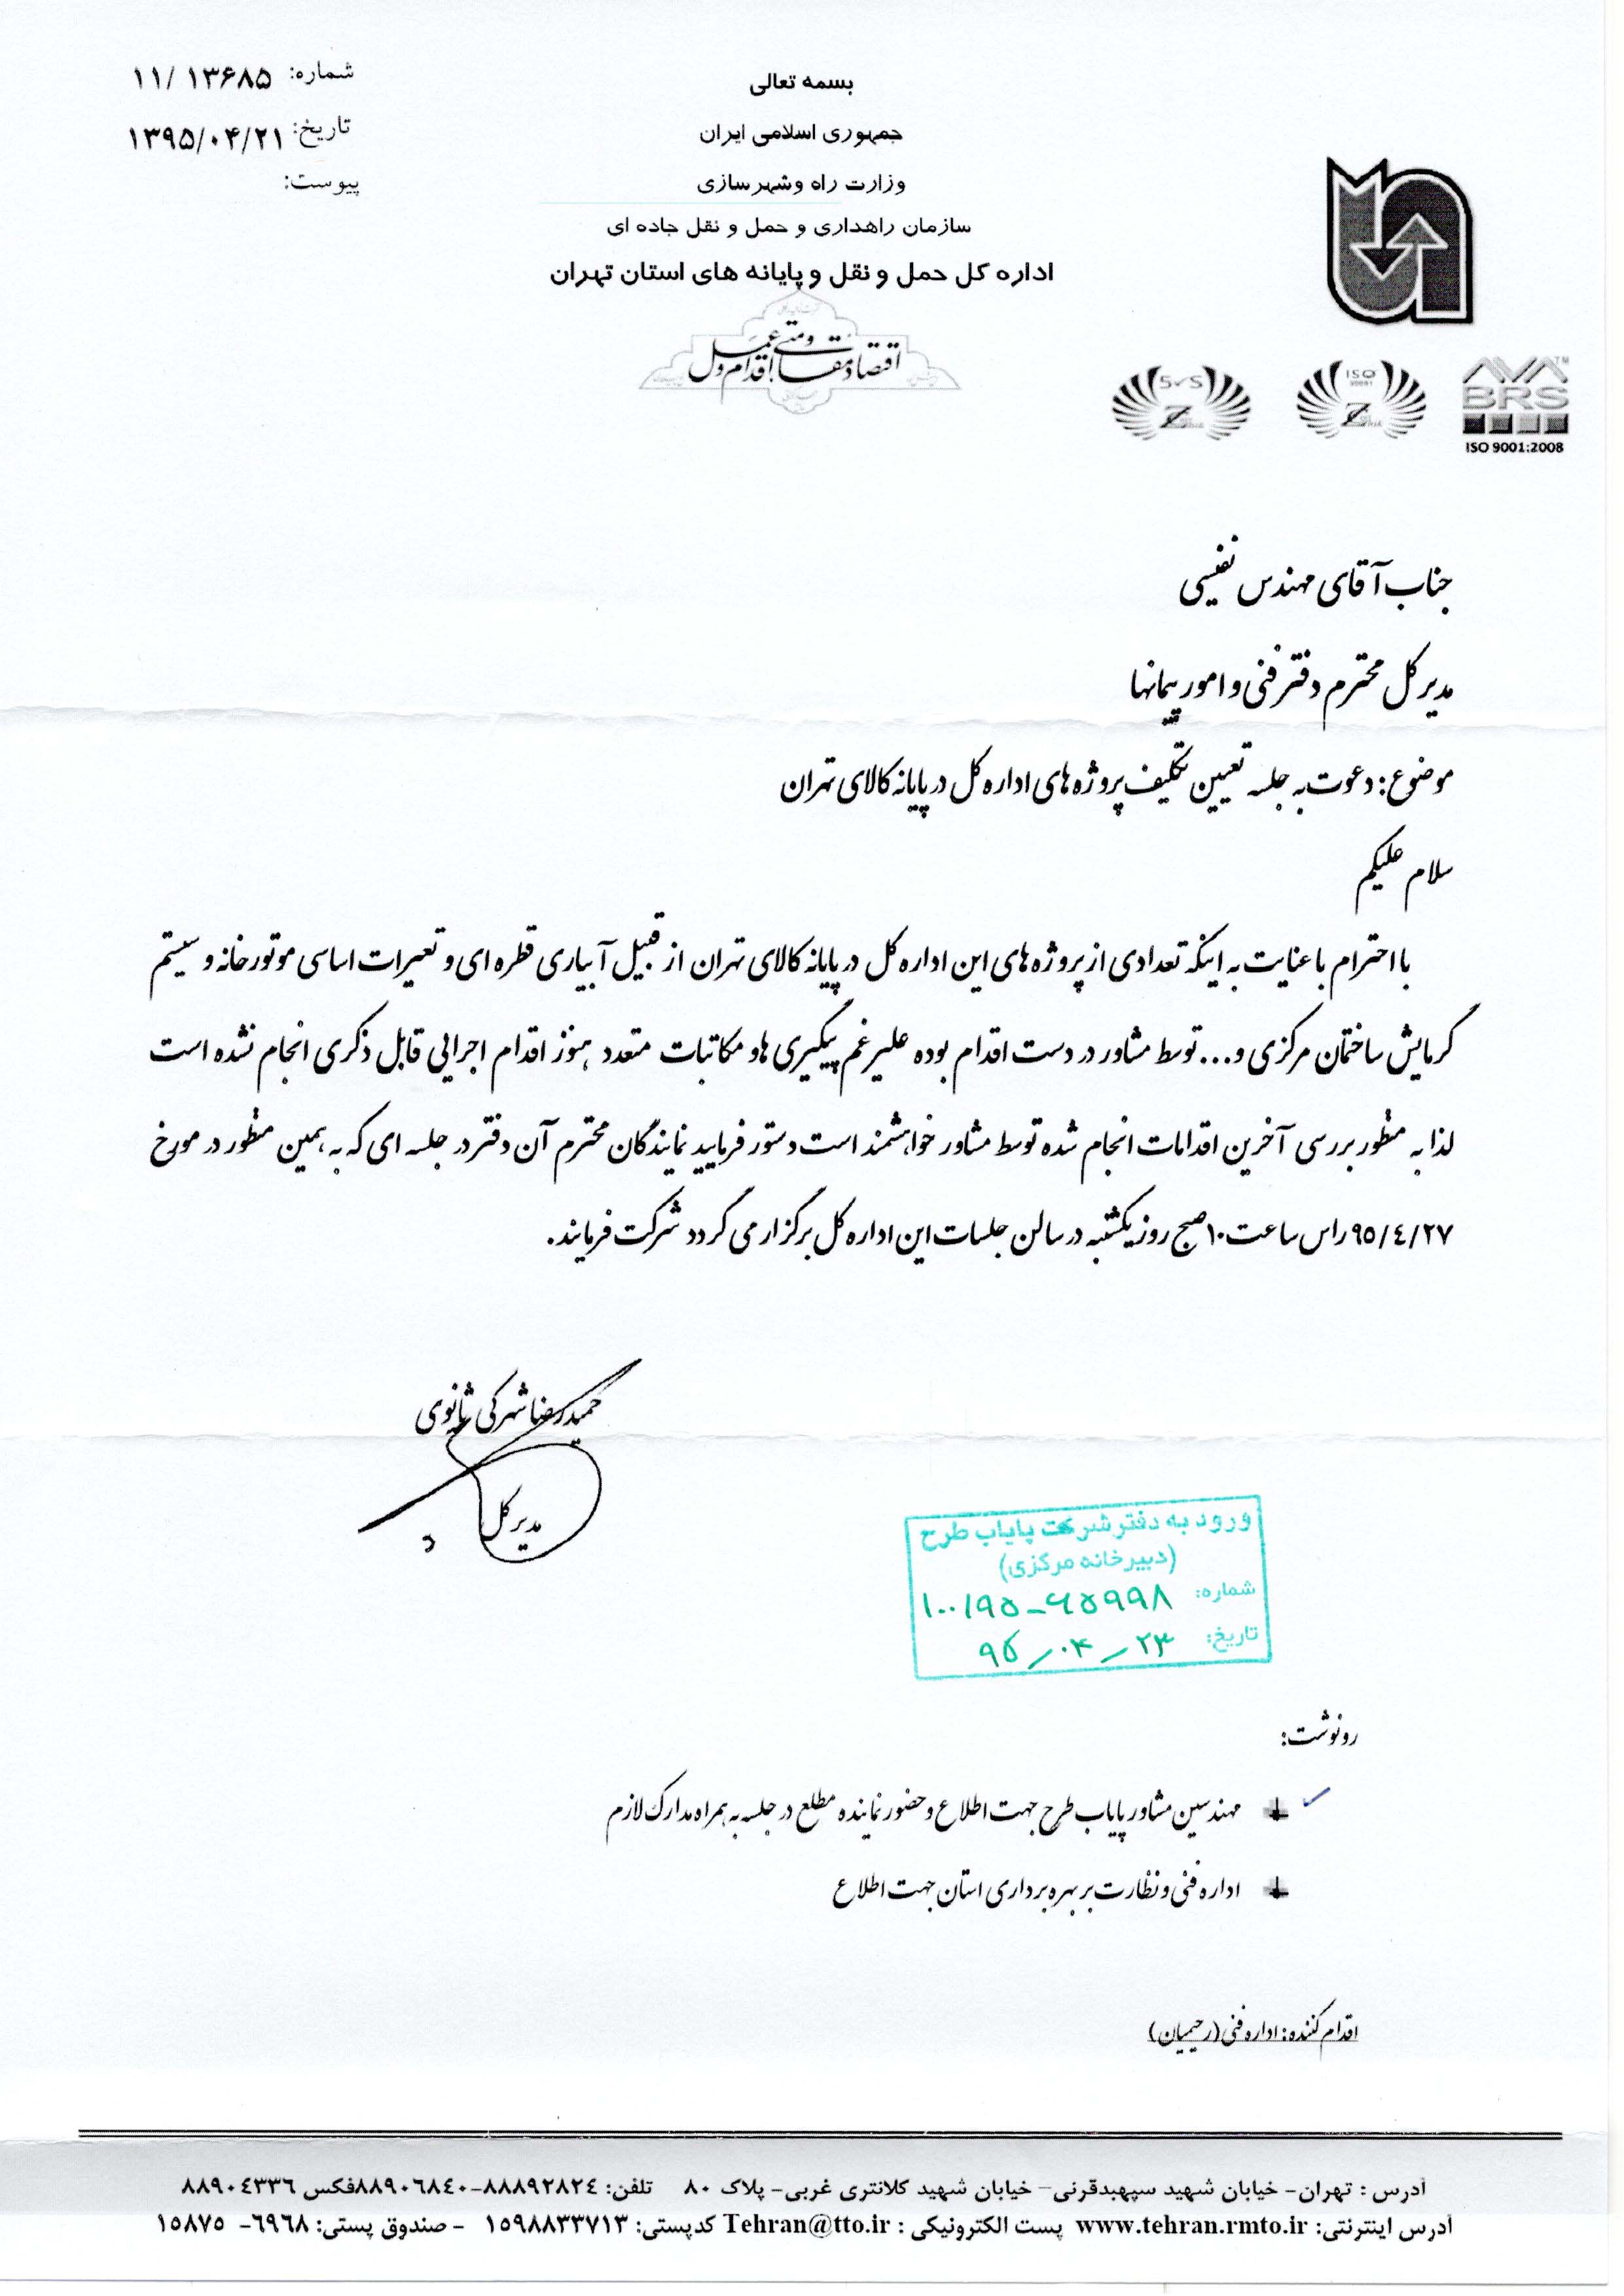 بسمه تعالی
جمهوری اسلامی ایران
وزارت راه وشهرسازی
سازمان راهداری و حمل و نقل جاده ای
اداره کل حمل و نقل و پایانه های استان تهران
اقتصاد مقاومتی، اقدام و عمل
شماره: ۱۱/ ۱۳۶۸۵
تاریخ: ۱۳۹۵/۰۴/۲۱
پیوست:
5S
ISO
BRS
ISO 9001:2008
جناب آقای مهندس نفیسی
مدیر کل محترم دفتر فنی و امور پیمانها
موضوع: دعوت به جلسه تعیین تکلیف پروژه های اداره کل در پایانه کالای تهران
سلام علیکم
با احترام با عنایت به اینکه تعدادی از پروژه های این اداره کل در پایانه کالای تهران از قبیل آبیاری قطره ای و تعمیرات اساسی موتورخانه و سیستم
گرمایش ساختمان مرکزی و... توسط مشاور در دست اقدام بوده علیرغم پیگیری ها و مکاتبات متعدد هنوز اقدام اجرایی قابل ذکری انجام نشده است
لذا به منظور بررسی آخرین اقدامات انجام شده توسط مشاور خواهشمند است دستور فرمایید نمایندگان محترم آن دفتر در جلسه ای که به همین منظور در مورخ
۹۵/۴/۲۷ راس ساعت ۱۰ صبح روز یکشنبه در سالن جلسات این اداره کل برگزار می گردد شرکت فرمایند.
حمیدرضا شهرکی ثانوی
مدیر کل
ورود به دفتر شرکت پایاب طرح
(دبیرخانه مرکزی)
شماره: ۱۰۰/۹۵-۶۵۹۹۸
تاریخ: ۹۵/۰۴/۲۳
رونوشت:
مهندسین مشاور پایاب طرح جهت اطلاع و حضور نماینده مطلع در جلسه به همراه مدارک لازم
اداره فنی و نظارت بر بهره برداری استان جهت اطلاع
اقدام کننده: اداره فنی (رحیمیان)
آدرس : تهران- خیابان شهید سپهبدقرنی- خیابان شهید کلانتری غربی- پلاک ۸۰ تلفن: ۸۸۸۹۲۸۲۴-۸۸۹۰۶۸۴۰فکس ۸۸۹۰۴۳۳۶
آدرس اینترنتی: www.tehran.rmto.ir پست الکترونیکی : Tehran@tto.ir کدپستی: ۱۵۹۸۸۳۳۷۱۳ - صندوق پستی: ۶۹۶۸- ۱۵۸۷۵